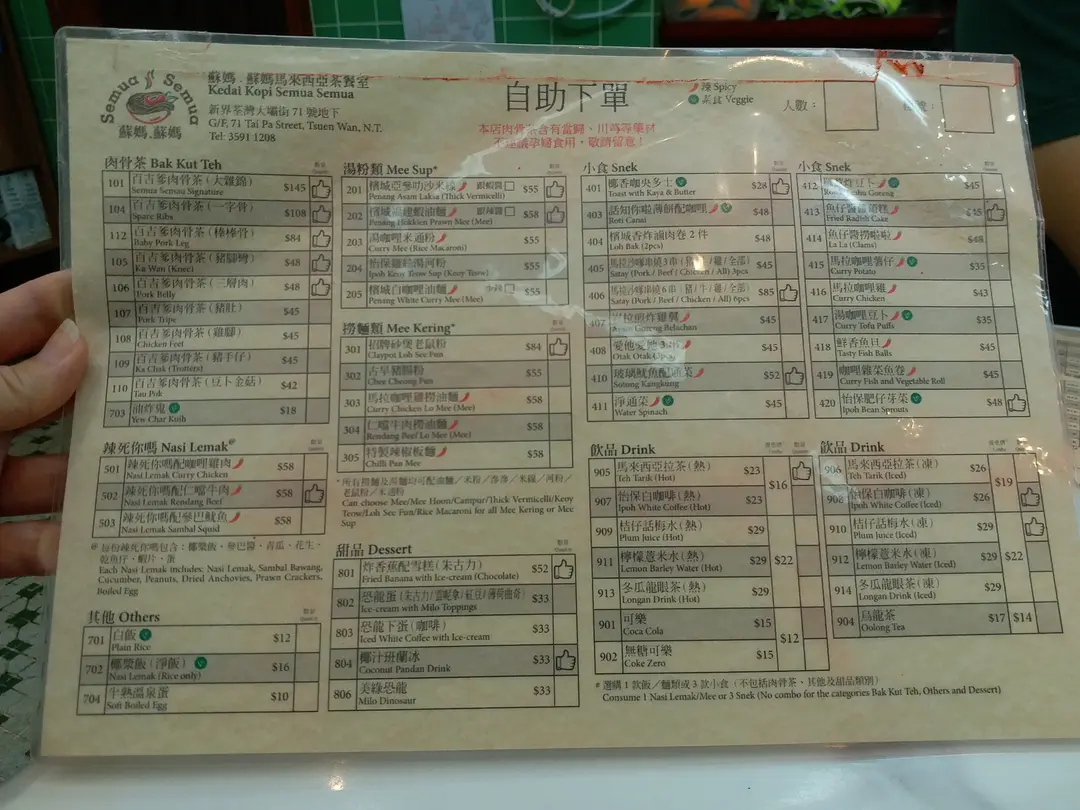 Semua Semua
蘇媽.蘇媽
蘇媽.蘇媽馬來西亞茶餐室
Kedai Kopi Semua Semua
新界荃灣大壩街 71 號地下
G/F, 71 Tai Pa Street, Tsuen Wan, N.T.
Tel: 3591 1208
自助下單
本店肉骨茶含有當歸、川芎等藥材
不建議孕婦食用，敬請留意！
辣 Spicy
素食 Veggie
人數：
肉骨茶 Bak Kut Teh
101 百吉爹肉骨茶（大雜錦） $145
Semua Semua Signature
104 百吉爹肉骨茶（一字骨） $108
Spare Ribs
112 百吉爹肉骨茶（棒棒骨） $84
Baby Pork Leg
105 百吉爹肉骨茶（豬腳彎） $48
Ka Wan (Knee)
106 百吉爹肉骨茶（三層肉） $48
Pork Belly
107 百吉爹肉骨茶（豬肚） $45
Pork Tripe
108 百吉爹肉骨茶（雞腳） $45
Chicken Feet
109 百吉爹肉骨茶（豬手仔） $45
Ka Chak (Trotters)
110 百吉爹肉骨茶（豆卜金菇） $42
Tau Pok
703 油炸鬼 $18
Yen Char Kuih
辣死你嗎 Nasi Lemak@
501 辣死你嗎配咖喱雞肉 $58
Nasi Lemak Curry Chicken
502 辣死你嗎配仁噹牛肉 $58
Nasi Lemak Rendang Beef
503 辣死你嗎配參巴魷魚 $58
Nasi Lemak Sambal Squid
@ 每份辣死你嗎包含：椰漿飯、參巴醬、青瓜、花生、
乾魚仔、蝦片、蛋
Each Nasi Lemak includes: Nasi Lemak, Sambal Bawang,
Cucumber, Peanuts, Dried Anchovies, Prawn Crackers,
Boiled Egg
其他 Others
701 白飯 $12
Plain Rice
702 椰漿飯（淨飯） $16
Nasi Lemak (Rice only)
704 牛熟溫泉蛋 $10
Soft Boiled Egg
湯粉類 Mee Sup*
201 檳城亞參叻沙米線 跟蝦醬 $55
Penang Asam Laksa (Thick Vermicelli)
202 檳城福建蝦油麵 跟辣醬 $58
Penang Hokkien Prawn Mee (Mee)
203 湯咖喱米通粉 $55
Curry Mee (Rice Macaroni)
204 怡保雞絲湯河粉 $55
Ipoh Keoy Teow Sup (Keoy Teow)
205 檳城白咖喱油麵 $55
Penang White Curry Mee (Mee)
撈麵類 Mee Kering*
301 招牌砂煲老鼠粉 $84
Claypot Loh See Fun
302 古早豬腸粉 $55
Chee Cheong Fun
303 馬拉咖喱雞撈油麵 $58
Curry Chicken Lo Mee (Mee)
304 仁噹牛肉撈油麵 $58
Rendang Beef Lo Mee (Mee)
305 特製辣椒板麵 $58
Chilli Pan Mee
* 所有撈麵及湯麵均可配油麵／米粉／濱海／米線／河粉／
老鼠粉／米通粉
Can choose Mee/Mee Hoon/Campur/Thick Vermicelli/Keoy
Teow/Loh See Fun/Rice Macaroni for all Mee Kering or Mee
Sup
甜品 Dessert
801 炸香蕉配雪糕（朱古力） $52
Fried Banana with Ice-cream (Chocolate)
802 恐龍蛋（朱古力/雲呢拿/紅豆/薄荷曲奇） $33
Ice-cream with Milo Toppings
803 恐龍下蛋（咖啡） $33
Iced White Coffee with Ice-cream
804 椰汁班蘭冰 $33
Coconut Pandan Drink
806 美綠恐龍 $33
Milo Dinosaur
小食 Snek
401 椰香咖央多士 $28
Toast with Kaya & Butter
403 話知你啦薄餅配咖喱 $48
Roti Canai
404 檳城香炸滷肉卷 2 件 $48
Loh Bak (2pcs)
405 馬拉沙嗲串燒3串（豬／牛／雞／全部） $45
Satay (Pork / Beef / Chicken / All) 3pcs
406 馬拉沙嗲串燒 6 串（豬／牛／雞／全部） $85
Satay (Pork / Beef / Chicken / All) 6pcs
407 峇拉煎炸雞翼 $45
Ayam Goreng Belachan
408 愛他愛他 $45
Otak Otak
410 玻璃魷魚配通菜 $52
Sotong Kangkung
411 淨通菜 $45
Water Spinach
小食 Snek
412 炸豆卜 $45
413 魚仔醬蘿蔔糕 $45
Fried Radish Cake
414 魚仔醬撈啦啦 $48
La La (Clams)
415 馬拉咖喱薯仔 $35
Curry Potato
416 馬拉咖喱雞 $43
Curry Chicken
417 湯咖喱豆卜 $35
Curry Tofu Puffs
418 鮮香魚旦 $45
Tasty Fish Balls
419 咖喱雜菜魚卷 $45
Curry Fish and Vegetable Roll
420 怡保肥仔芽菜 $48
Ipoh Bean Sprouts
飲品 Drink
905 馬來西亞拉茶（熱） $23
Teh Tarik (Hot)
$16
907 怡保白咖啡（熱） $23
Ipoh White Coffee (Hot)
909 桔仔話梅水（熱） $29
Plum Juice (Hot)
911 檸檬薏米水（熱） $29 $22
Lemon Barley Water (Hot)
913 冬瓜龍眼茶（熱） $29
Longan Drink (Hot)
901 可樂 $15
Coca Cola
$12
902 無糖可樂 $15
Coke Zero
飲品 Drink
906 馬來西亞拉茶（凍） $26
Teh Tarik (Iced)
$19
908 怡保白咖啡（凍） $26
Ipoh White Coffee (Iced)
910 桔仔話梅水（凍） $29
Plum Juice (Iced)
912 檸檬薏米水（凍） $29 $22
Lemon Barley Water (Iced)
914 冬瓜龍眼茶（凍） $29
Longan Drink (Iced)
904 烏龍茶 $17 $14
Oolong Tea
# 選購 1 款飯／麵類或 3 款小食（不包括肉骨茶、其他及甜品類別）
Consume 1 Nasi Lemak/Mee or 3 Snek (No combo for the categories Bak Kut Teh, Others and Dessert)